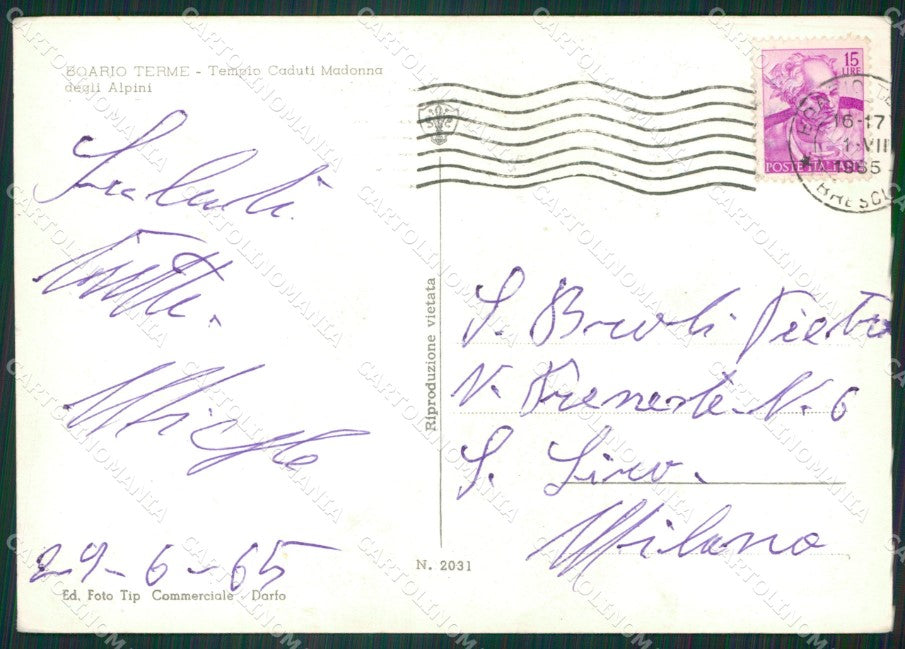 BOARIO TERME - Tempio Caduti Madonna
degli Alpini
Saluti
29-6-65
Ed. Foto Tip Commerciale Darfo
Riproduzione vietata
N. 2031
15
LIRE
POSTE ITALIANE
16-17
1·VII
1965
BRESCIA
S. Pietro
V. N. 6
S. Siro.
Milano
CARTOLINOMANIA